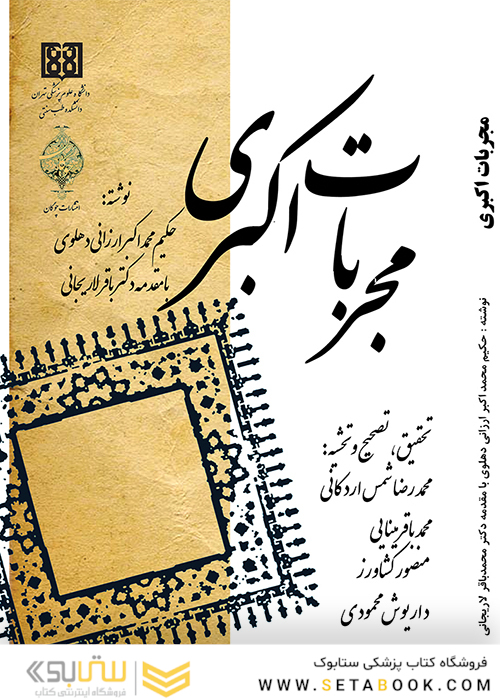 دانشگاه علوم پزشکی تهران
دانشکده طب سنتی
انتشارات چوگان
نوشته:
حکیم محمد اکبر ارزانی دهلوی
با مقدمه دکتر باقر لاریجانی
مجربات اکبری
تحقیق، تصحیح و تحشیه:
محمدرضا شمس اردکانی
محمدباقر مینایی
منصور کشاورز
داریوش محمودی
مجربات اکبری
نوشته : حکیم محمد اکبر ارزانی دهلوی با مقدمه دکتر محمدباقر لاریجانی
ستابوک
فروشگاه اینترنتی کتاب
فروشگاه کتاب پزشکی ستابوک
WWW.SETABOOK.COM